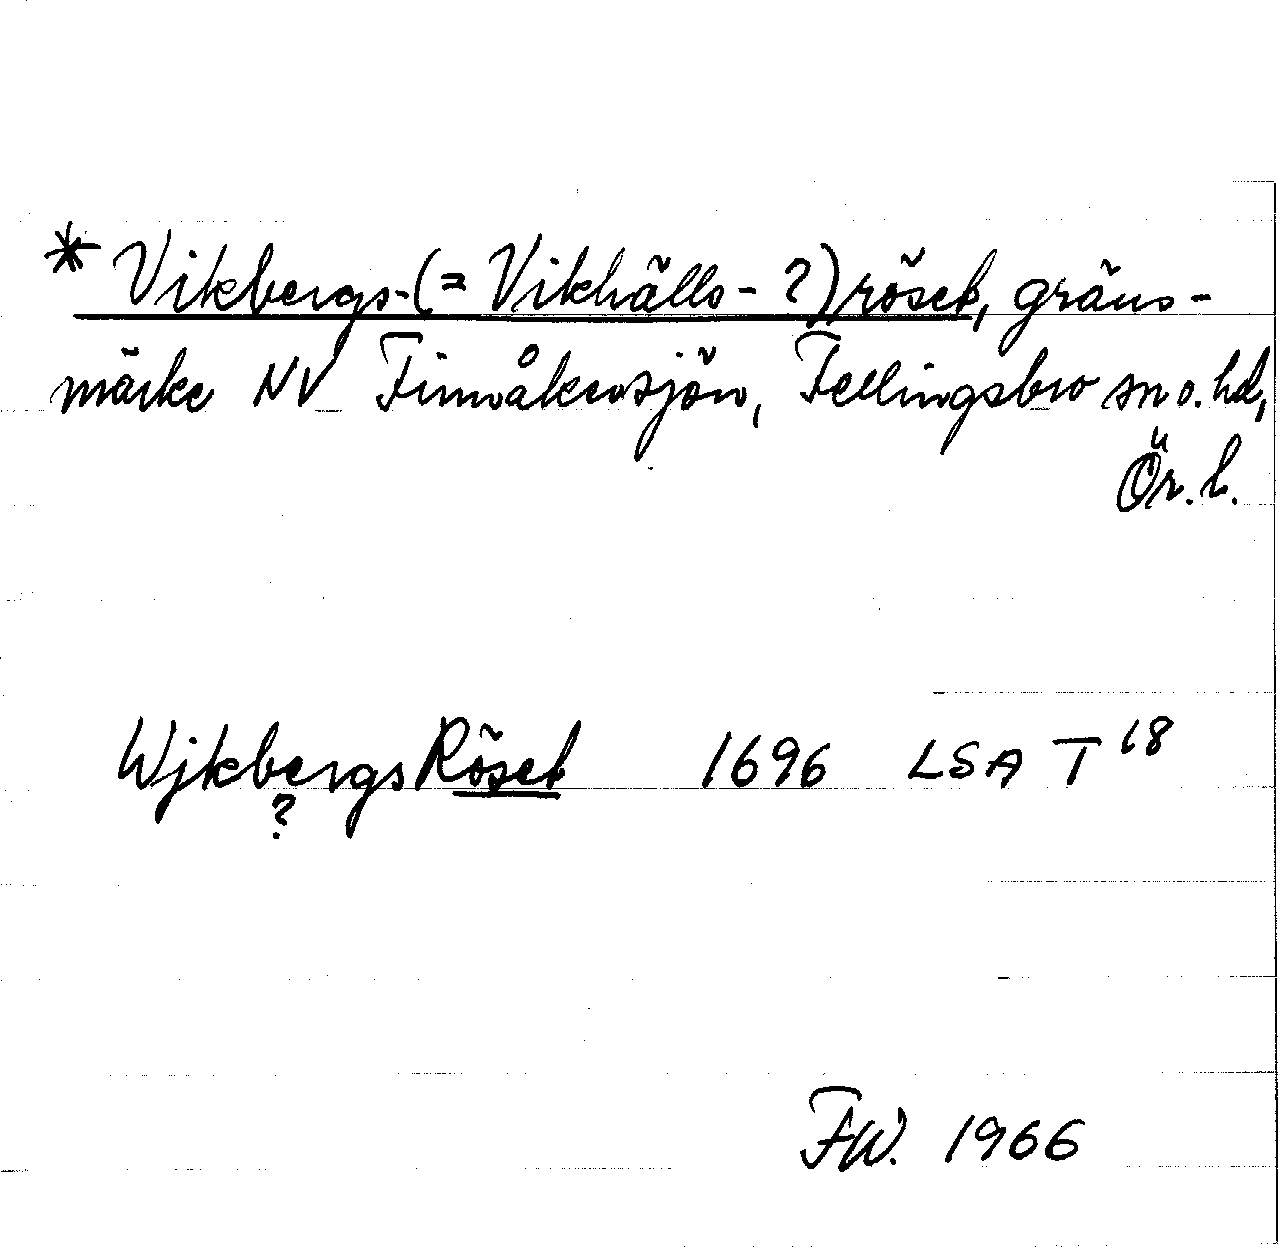 * Vikbergs-(= Vikhälls-?)röset, gräns-
märke NV Finnåkersjön, Fellingsbro sn o. hd,
Ör. l.
WjkbergsRöset 1696 LSA T 18
?
FW. 1966